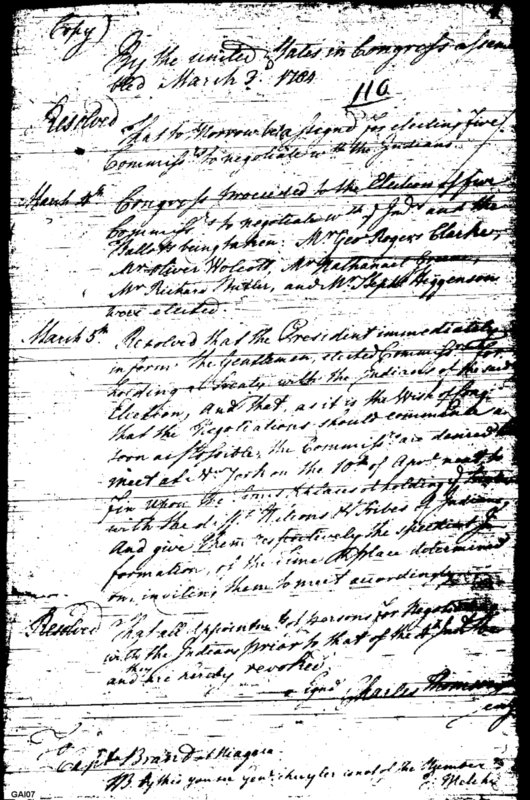 Copy)
By the united States in Congress assem
bled March 3d. 1784
110
Resolved That to Morrow be assigned for electing five
Commissrs. to negotiate with the Indians.
March 4th Congress proceeded to the Election of five
Commissrs. to negotiate with ye Inds. and the
Ballots being taken: Mr Geo Rogers Clarke,
Mr Oliver Wolcott, Mr Nathanael Greene,
Mr Richard Butler, and Mr Stephn Higgenson
were elected.
March 5th Resolved that the President immediately
inform the Gentlemen, elected Commissrs for
holding a treaty with the Indians of the said
Election, And that, as it is the Wish of Congs
that the Negotiations should commence as
soon as possible, the Commissrs are desired to
meet at N York on the 10th of Aprl next, to
fix upon the times & places of holding ye
with the difft. Nations & Tribes of Indians,
And give them respectively the speediest In
formation, of the time & place determined
on, inviting them to meet accordingly
Resolved That all Appointmts of persons for
with the Indians prior to that of the 4th Inst
they
and are hereby revoked.
Signd Charles Thomson
To
Captn Brand at Niagara
NB By this you see Genl. Schuyler is not of the Number